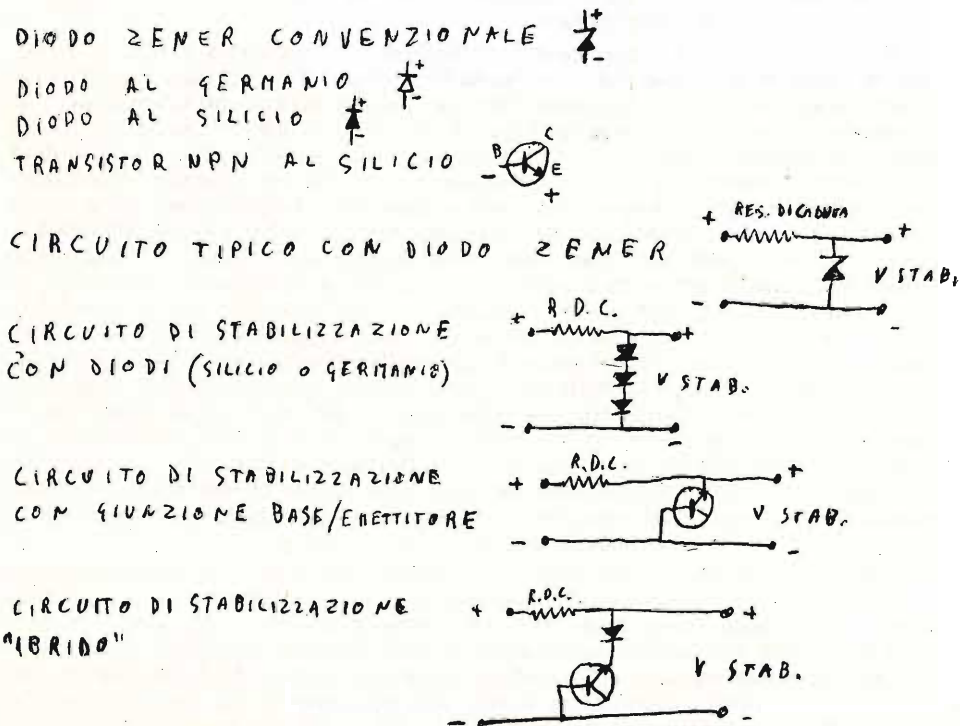 DIODO ZENER CONVENZIONALE + -
DIODO AL GERMANIO + -
DIODO AL SILICIO + -
TRANSISTOR NPN AL SILICIO - B C E +
CIRCUITO TIPICO CON DIODO ZENER
+ RES. DI CADUTA +
V STAB.
- -
CIRCUITO DI STABILIZZAZIONE
CON DIODI (SILICIO o GERMANIO)
+ R.D.C. +
V STAB.
- -
CIRCUITO DI STABILIZZAZIONE
CON GIUNZIONE BASE/EMETTITORE
+ R.D.C. +
V STAB.
- -
CIRCUITO DI STABILIZZAZIONE
"IBRIDO"
+ R.D.C. +
V STAB.
- -